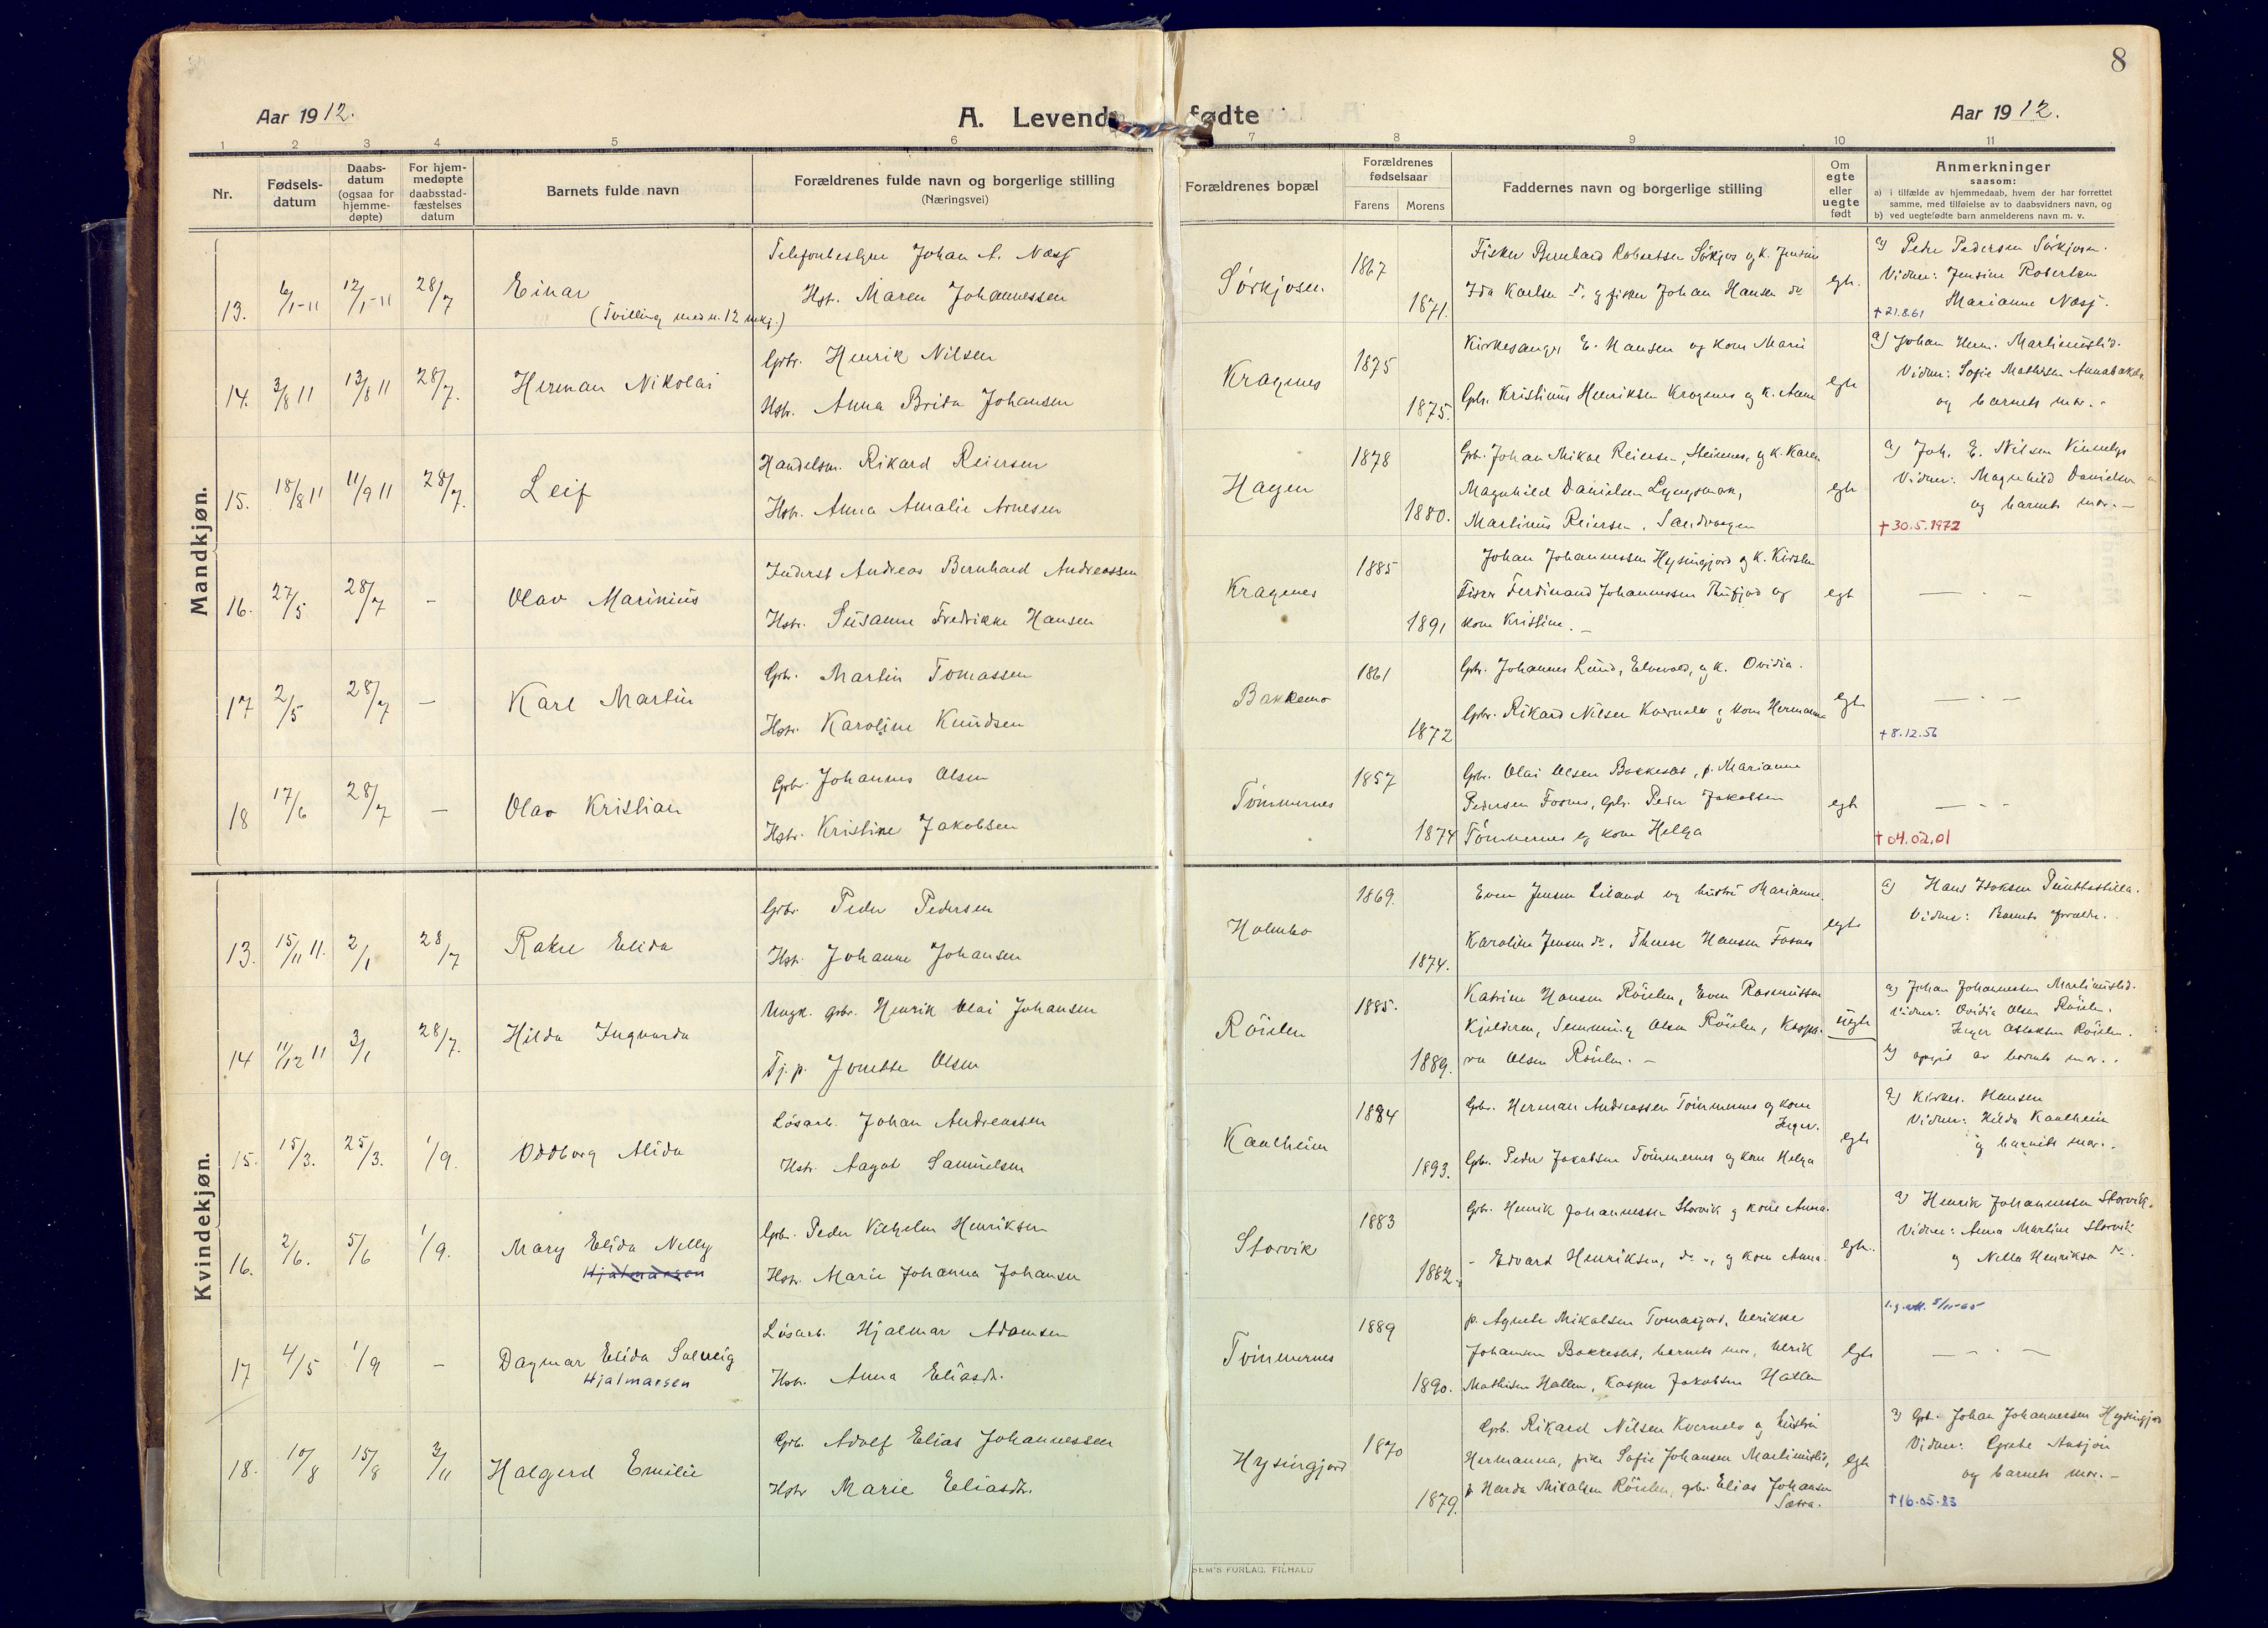 8
Aar 1912.
A. Levende fødte
Aar 1912.
1 2 3 4 5 6 7 8 9 10 11
Nr.
Fødsels-
datum
Daabs-
datum
(ogsaa for
hjemme-
døpte)
For hjem-
medøpte
daabsstad-
fæstelses
datum
Barnets fulde navn
Forældrenes fulde navn og borgerlige stilling
(Næringsvei)
Forældrenes bopæl
Forældrenes
fødselsaar
Farens Morens
Faddernes navn og borgerlige stilling
Om
egte
eller
uegte
født
Anmerkninger
saasom:
a) i tilfælde av hjemmedaab, hvem der har forrettet
samme, med tilføielse av to daabsvidners navn, og
b) ved uegtefødte barn anmelderens navn m. v.
Mandkjøn.
13. 6/1-11 12/1-11 28/7 Einar
(Tvilling med n. 12 mkj.)
Johan A. Næsj
Hst. Maren Johannessen
Sørkjosen. 1867 1871.
Fisker Bernhard Robertsen Sørkjos og k. Jensine
Ida Karlsen do, og fisker Johan Hansen do
egte.
a) Peder Pedersen Sørkjosen.
Vidner: Jensine Robertsen
Marianne Næsj.
†21.8.61
14. 3/8 11 13/8 11 28/7. Herman Nikolai
Gbr. Henrik Nilsen
Hstr. Anna Brita Johansen
Kragnes 1875 1875.
Kirkesanger E. Hansen og kone Marie
Gbr. Kristinus Henriksen Kragenes og k. Anne
egte
a) Johan Hem. Martinuslid.
Vidner: Sofie Mathisen
og barnets mor.-
15. 18/8 11 11/9 11 28/7. Leif
Handelsm. Rikard Reiersen
Hstr. Anna Amalie Arnesen
Hagen 1878 1880.
Gbr. Johan Mikal Reiersen, Steinnes, og k. Karen
Magnhild Danielsen Lyngsmark,
Martinus Reiersen, Sandvaagen
egte
a) Joh. E. Nilsen
Vidner: Magnhild Danielsen
og barnets mor.-
† 30.5.1972
16. 27/5 28/7 - Olav Marinius
Inderst Andreas Bernhard Andreassen
Hstr. Susanne Fredrikke Hansen
Kragenes 1885 1891
Johan Johannessen Hysingjord og k. Kirsten
Fisker Ferdinand Johannessen og
kone Kristine. -
egt
— - -
17 2/5 28/7 - Karl Martin
Gbr. Martin Tomassen
Hstr. Karoline Knudsen
Bakkemo 1861 1872
Gbr. Johannes Lund, Elvevold, og k. Ovidia.
Gbr. Rikard Nilsen Kvernelv og kone Hermanna
egte
— - —
+8.12.56
18 17/6 28/7 - Olav Kristian
Gbr. Johannes Olsen
Hstr. Kristine Jakobsen
Tømmernes 1857 1874
Gbr. Olai Olsen Bakkeslet, p. Marianne
Pedersen Fosnes, Gbr. Peder Jakobsen
Tømmernes og kone Helga
egte
— - -
†04.02.01
Kvindekjøn.
13. 15/11 11. 2/1 28/7 Rakel Elida
Gbr. Peder Pedersen
Hstr. Johanne Johansen
Holmbo 1869. 1874.
Even Jensen Liland og hustru Marianne.
Karoline Jensen do, Therese Hansen Fosnes
egte
a) Hans Isaksen
Vidner: Barnets forældre.
14 11/12 11 3/1 28/7. Hilda Ingvarda
Ungk. gbr. Henrik Olai Johansen
Tj. p. Jonette Olsen
Röielen 1885. 1889.
Katrine Hansen Röielen, Even Rasmussen
Kjelderen, Olsen Röielen, Kaspa-
ra Olsen Röielen. -
uegte
a) Johan Johannessen Martinuslid.
Vidner: Ovidia Olsen Röielen.
Inger Röielen.
b) opgit av barnets mor.-
15. 15/3. 25/3. 1/9. Oddborg Alida
Løsarb. Johan Andreassen
Hstr. Aagot Samuelsen
Kaalheim 1884 1893.
Gbr. Herman Andreassen Tømmernes og kone
Inger.
Gbr. Peder Jakobsen Tømmernes og kone Helga
egte
a) Kirkes. Hansen
Vidner: Hilda Kaalheim
og barnets mor.-
16. 2/6. 5/6 1/9. Mary Elida Nelly
Hjalmarsen
Gbr. Peder Vilhelm Henriksen
Hstr. Marie Johanna Johansen
Storvik 1883 1882.
Gbr. Henrik Johannessen Storvik og kone Anna.
- Edvard Henriksen, do, og kone Anna.
egte.
a) Henrik Johannessen Storvik.
Vidner: Anna Martine Storvik
og Nella Henriksen do.
17 4/5 1/9 - Dagmar Elida Solveig
Hjalmarsen
Løsarb. Hjalmar Adamsen
Hstr. Anna Eliasdr.
Tømmernes 1889 1890.
p. Agnete Mikalsen Tomasjord, Ulrikke
Johansen Bakkeslet, barnets mor, Ulrik
Mathisen Hallen, Kasper Jakobsen Hallen
egte
— - —
18. 10/8 15/8 3/11 Halgerd Emilie
Gbr. Adolf Elias Johannessen
Hstr Marie Eliasdr.
Hysingjord 1870 1879.
Gbr. Rikard Nilsen Kvernelv og hustru
Hermanna, pike Sofie Johansen Martinuslid,
p Harda Mikalsen Röielen, gbr. Elias Johansen
Sætra.
egte
a) Gbr. Johan Johannessen Hysingjord
Vidner: Grete
og barnets mor.-
†16.05.83
SEM'S FORLAG, FILHALD